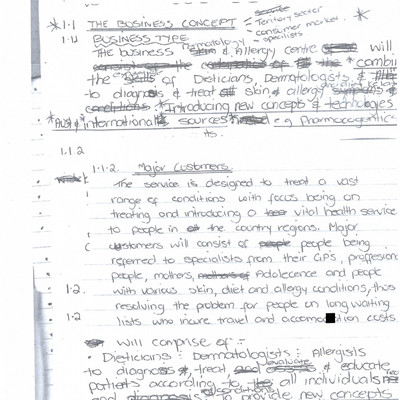 service
Teritory sector
* 1.1 THE BUSINESS CONCEPT - consumer market. *
1.1.1 BUSINESS TYPE. - specilists
Dermatology
The business & Allergy Centre will
combii
the of Dieticians, Dermatologists &
to diagnosis & treat skin, & allergy
conditions. Introducing new concepts & technologies
* Aust & international sources e.g Pharmaceutica
ts.
1.1.2
1.1.2. Major Customers.
The service is designed to treat a vast
range of conditions with focus being on
treating and introducing a vital health service
to people in the country regions. Major
customers will consist of people being
referred to specialists from their GPS, profession
people, mothers, Adolecence and people
1.2 with various skin, diet and allergy conditions, thus
resolving the problem for people on long waiting
1.2 lists who incure travel and accomodation costs
will comprise of :-
• Dieticians : Dermatologists : Allergists
evaluate
to diagnosis, treat & educate
patients according to all individuals
and to provide new concepts